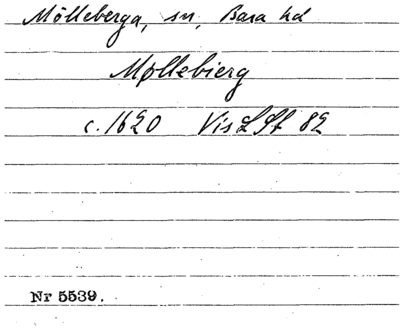 Mölleberga, sn, Bara hd
Møllebierg
c. 1620 Vis L St 82
Nr 5539.